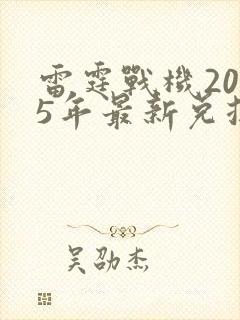 雷霆戰機20
5年最新兌
吴劭杰